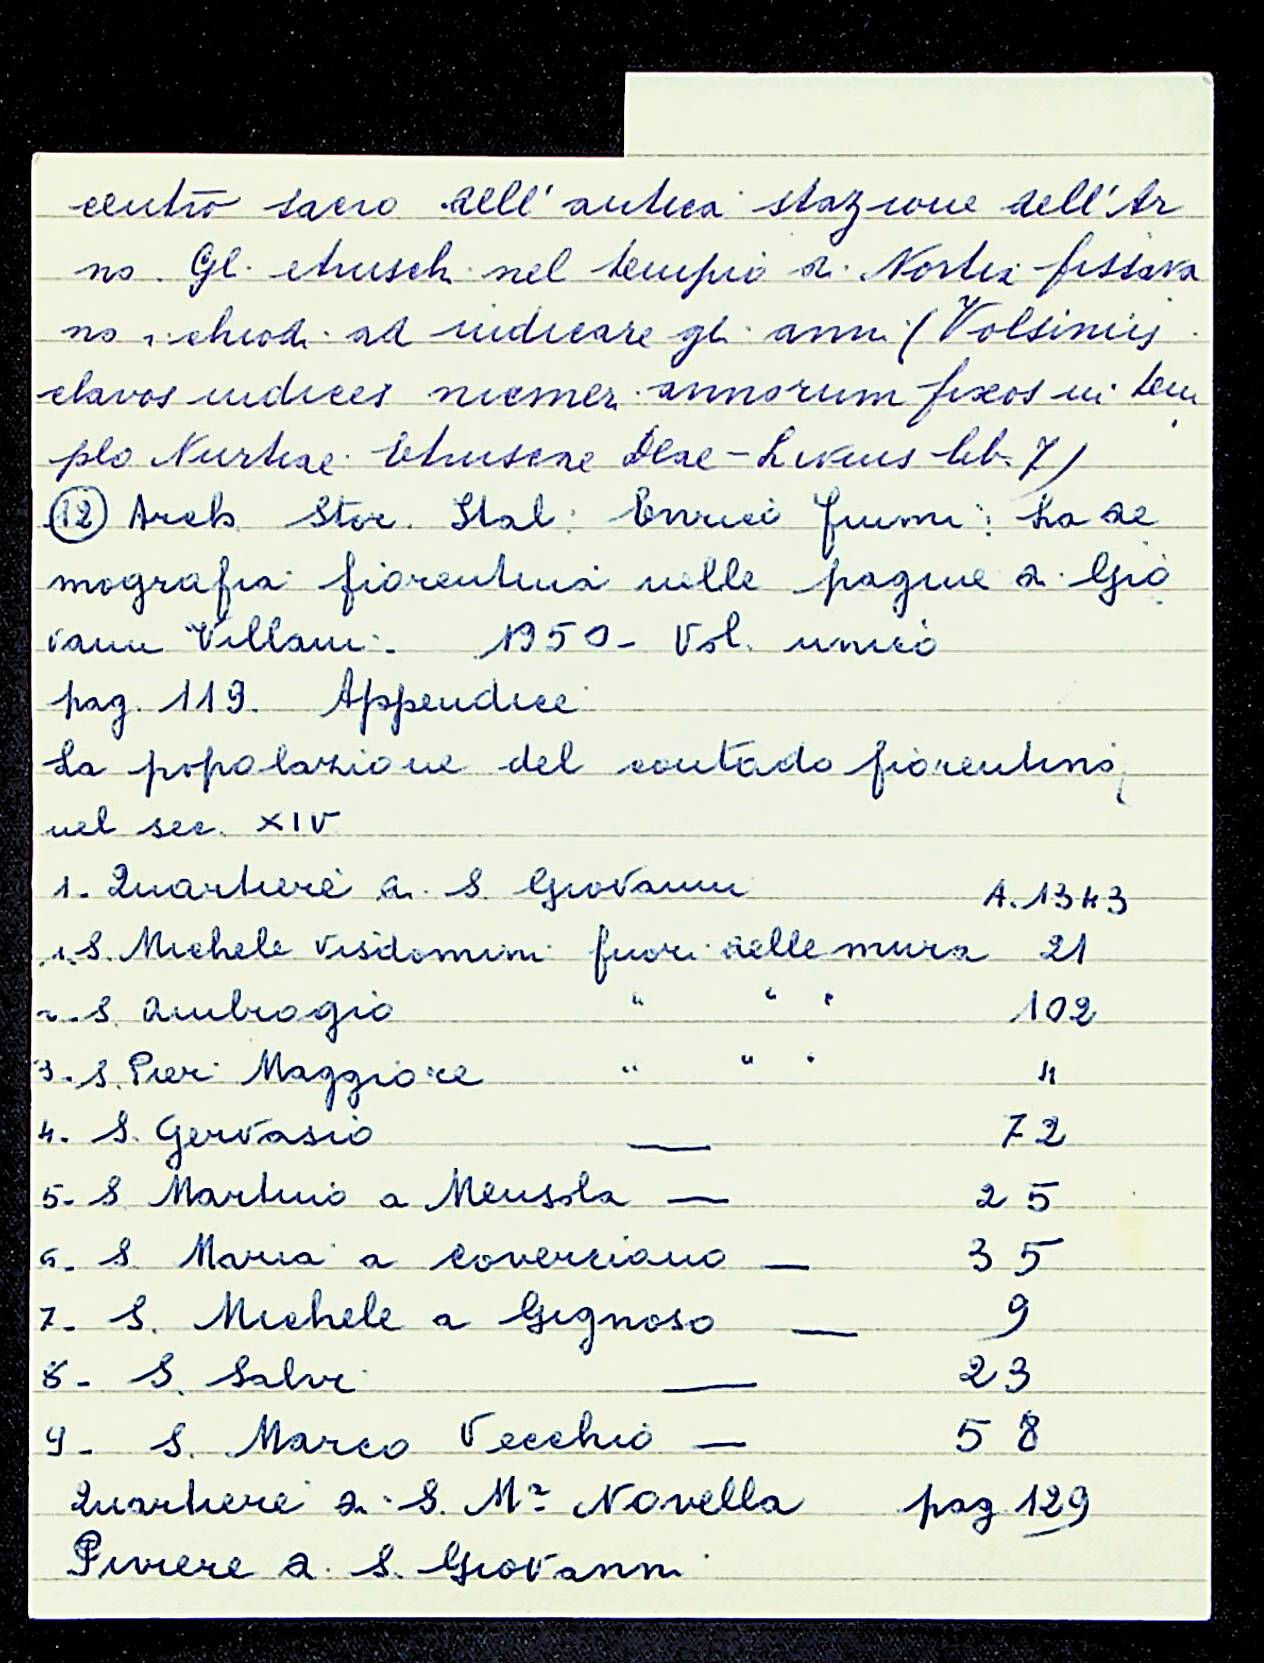 centro sacro dell'antica stazione dell'Ar
no. Gli etruschi nel tempio di Nortia fissava
no i chiodi ad indicare gli anni (Volsiniis
clavos indices numeri annorum fixos in tem
plo Nurtiae Etruscae Deae - Livius lib. 7)
(12) Arch. Stor. Ital: Enrico Fiumi: La de
mografia fiorentina nelle pagine di Gio
vanni Villani. 1950 - Vol. unico
pag. 119. Appendice
La popolazione del contado fiorentino,
nel sec. XIV
1. Quartiere di S. Giovanni A. 1343
1. S. Michele Visdomini fuori delle mura 21
2. S. Ambrogio " " " 102
3. S. Pier Maggiore " " " 4
4. S. Gervasio — 72
5. S. Martino a Mensola — 25
6. S. Maria a Coverciano — 35
7. S. Michele a Gignoso — 9
8 - S. Salvi — 23
9 - S. Marco Vecchio — 58
Quartiere di S. Mª Novella pag 129
Piviere di S. Giovanni